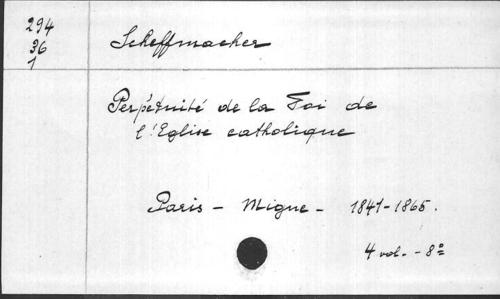 294
36
1
Scheffmacher
Perpétuité de la Foi de
l'Eglise catholique
Paris - Migne - 1841-1865.
4 vol. - 8º